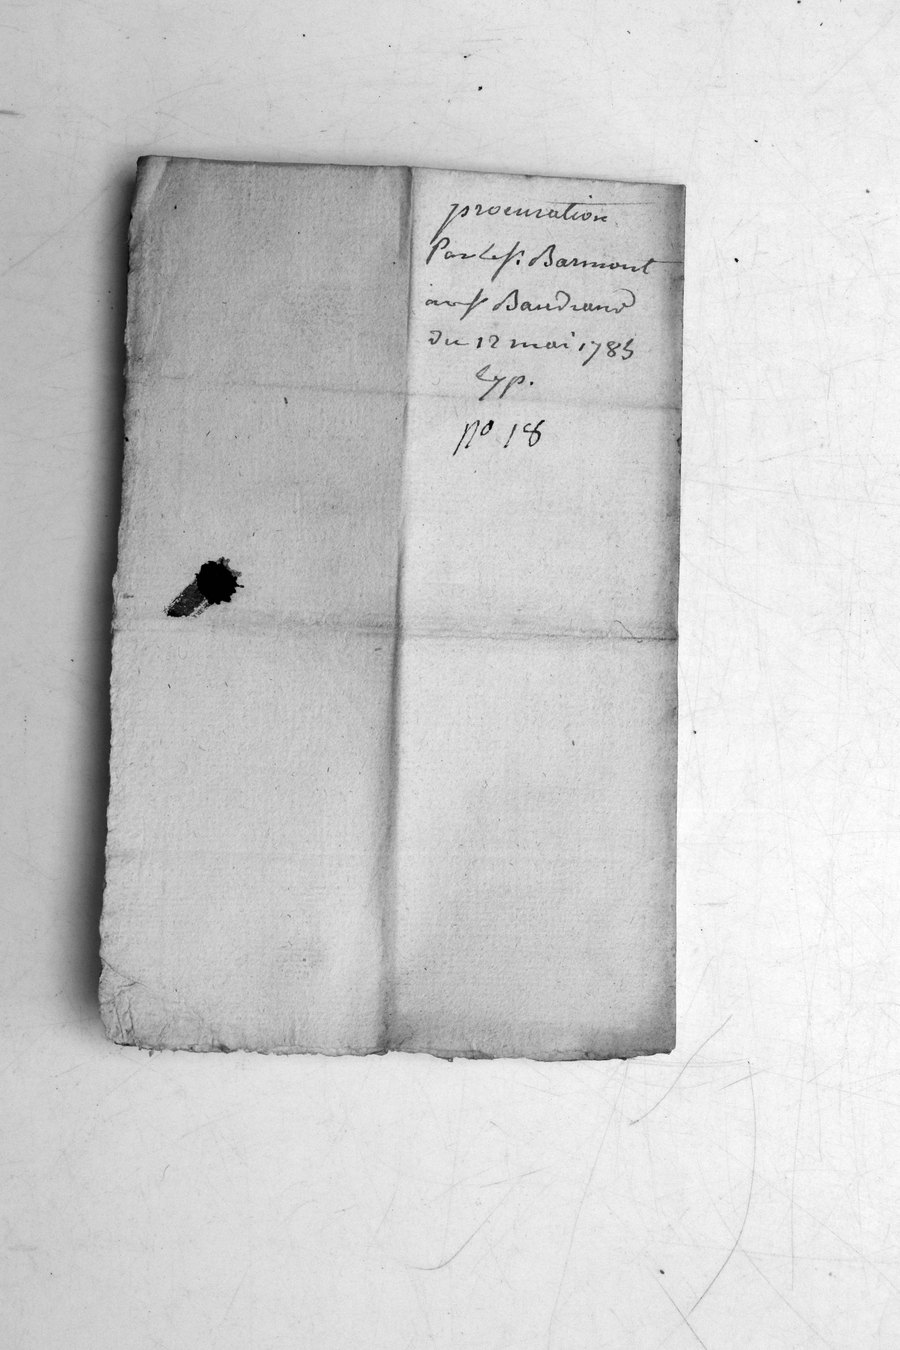 procuration
Par le Sr. Barmont
au Sr Baudrand
du 12 mai 1785
Exp.
no 18